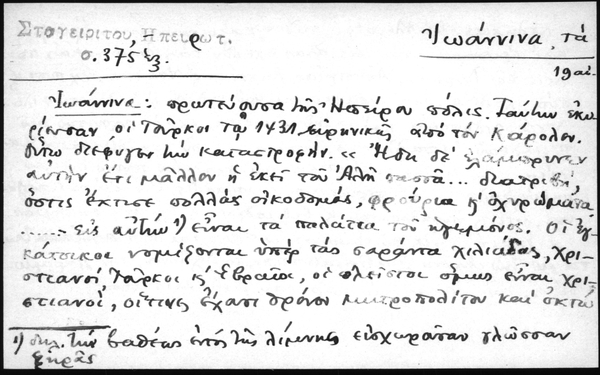 Σταγειρίτου, Ηπειρωτ.
σ. 375 ἑξ.
Ἰωάννινα, τά
19 αἰ.
Ἰωάννινα: πρωτεύουσα τῆς Ἠπείρου πόλις. Ταύτην ἐκυ-
ρίευσαν οἱ Τοῦρκοι τῷ 1431 εἰρηνικῶς ἀπό τόν Κάρολον.
οὕτω διέφυγε τήν καταστροφήν. «Ἤδη δέ ἐλάμπρυνεν
αὐτήν ἔτι μᾶλλον ἡ ἐκεῖ τοῦ Ἀλῆ πασσᾶ... διατριβή,
ὅστις ἔκτισε πολλάς οἰκοδομάς, φρούρια κ' ὀχυρώματα
....... εἰς αὐτήν 1) εἶναι τά παλάτια τοῦ ἡγεμόνος. Οἱ ἐγ-
κάτοικοι νομίζονται ὑπέρ τάς σαράντα χιλιάδας, χρι-
στιανοί, Τοῦρκοι κ' Ἑβραῖοι, οἱ πλεῖστοι ὅμως εἶναι χρι-
στιανοί, οἵτινες ἔχουσι θρόνον μητροπολίτου καί ὀκτώ
1) δηλ. τήν βαθέως ἐντός τῆς λίμνης εἰσχωροῦσαν γλῶσσαν
ξηρᾶς